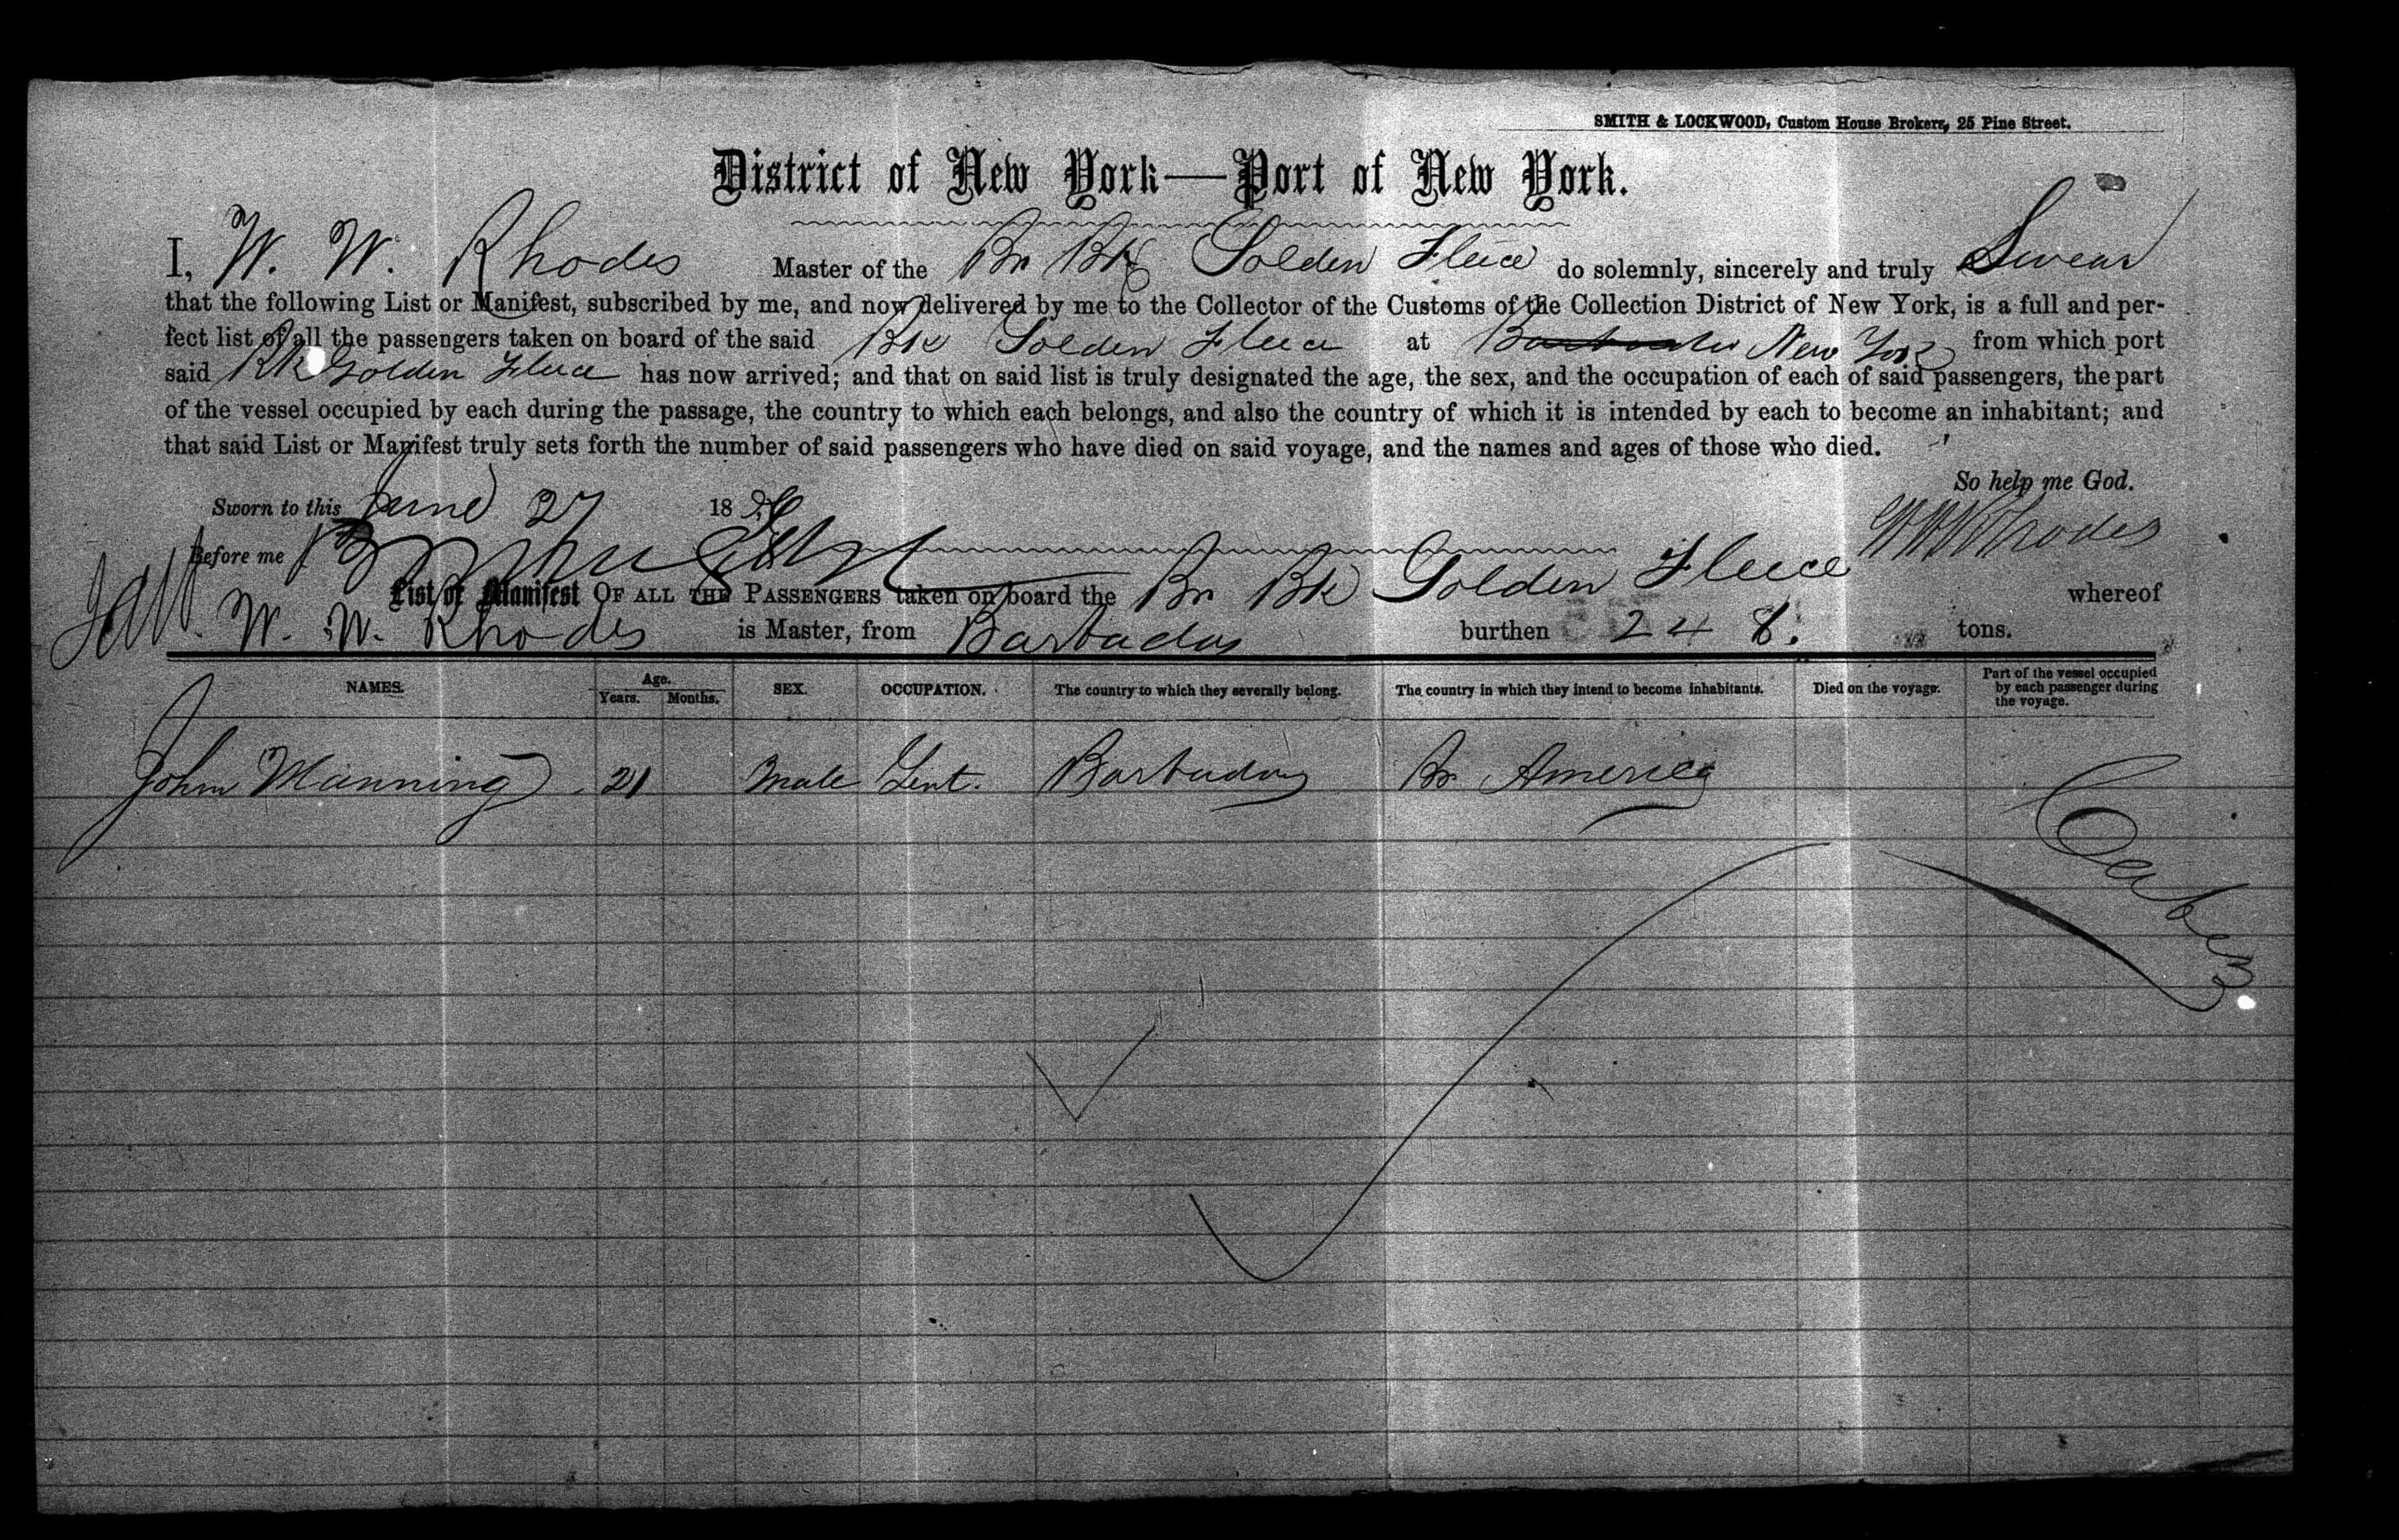 SMITH & LOCKWOOD, Custom House Brokers, 25 Pine Street.
District of New York—Port of New York.
I, W. W. Rhodes Master of the Br Bk Golden Fleece do solemnly, sincerely and truly Swear
that the following List or Manifest, subscribed by me, and now delivered by me to the Collector of the Customs of the Collection District of New York, is a full and per-
fect list of all the passengers taken on board of the said Bk Golden Fleece at Barbados New York from which port
said Bk Golden Fleece has now arrived; and that on said list is truly designated the age, the sex, and the occupation of each of said passengers, the part
of the vessel occupied by each during the passage, the country to which each belongs, and also the country of which it is intended by each to become an inhabitant; and
that said List or Manifest truly sets forth the number of said passengers who have died on said voyage, and the names and ages of those who died.
So help me God.
Sworn to this June 27 18
W W Rhodes
Before me
List or Manifest OF ALL THE PASSENGERS taken on board the Br Bk Golden Fleece whereof
W. W. Rhodes is Master, from Barbados burthen 248. tons.
NAMES. Age. Years. Months. SEX. OCCUPATION. The country to which they severally belong. The country in which they intend to become inhabitants. Died on the voyage. Part of the vessel occupied by each passenger during the voyage.
John Manning 21 Male Gent. Barbados Br America
Cabin